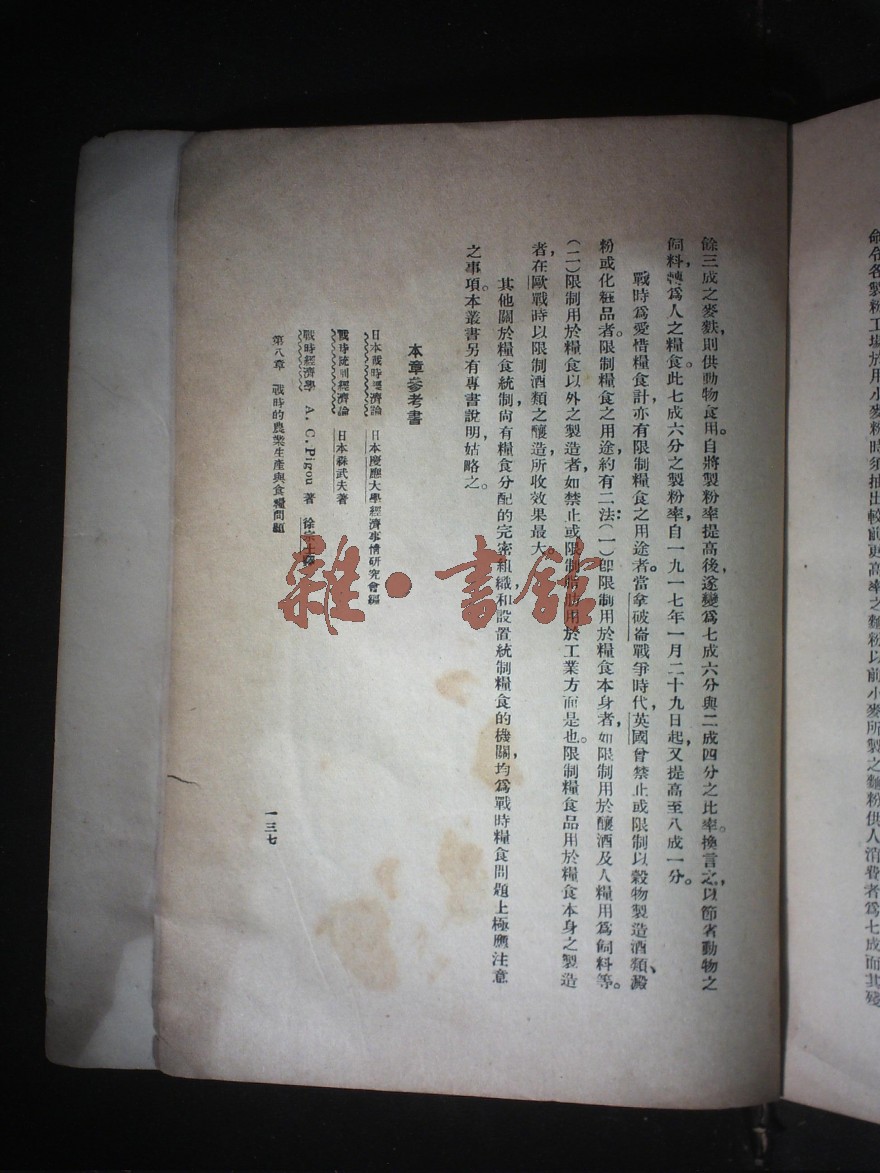 命令各製粉工場於用小麥粉時須抽出較前更高率之麵粉以前小麥所製之麵粉供人消費者爲七成而其殘
餘三成之麥麩，則供動物食用。自將製粉率提高後，遂變爲七成六分與二成四分之比率。換言之，以節省動物之
飼料，轉爲人之糧食。此七成六分之製粉率，自一九一七年一月二十九日起，又提高至八成一分。
戰時爲愛惜糧食計，亦有限制糧食之用途者。當拿破崙戰爭時代，英國曾禁止或限制以穀物製造酒類、澱
粉或化粧品者。限制糧食之用途，約有二法：（一）即限制用於糧食本身者，如限制用於釀酒及人糧用爲飼料等。
（二）限制用於糧食以外之製造者，如禁止或限制脂肪用於工業方面是也。限制糧食品用於糧食本身之製造
者，在歐戰時以限制酒類之釀造，所收效果最大。
其他關於糧食統制，尚有糧食分配的完密組織和設置統制糧食的機關，均爲戰時糧食問題上極應注意
之事項。本叢書另有專書說明，姑略之。
本章參考書
日本戰時經濟論 日本慶應大學經濟事情研究會編
戰時統制經濟論 日本森武夫著
戰時經濟學 A. C. Pigou 著 徐宗士譯
第八章 戰時的農業生產與食糧問題
一三七
雜·書館